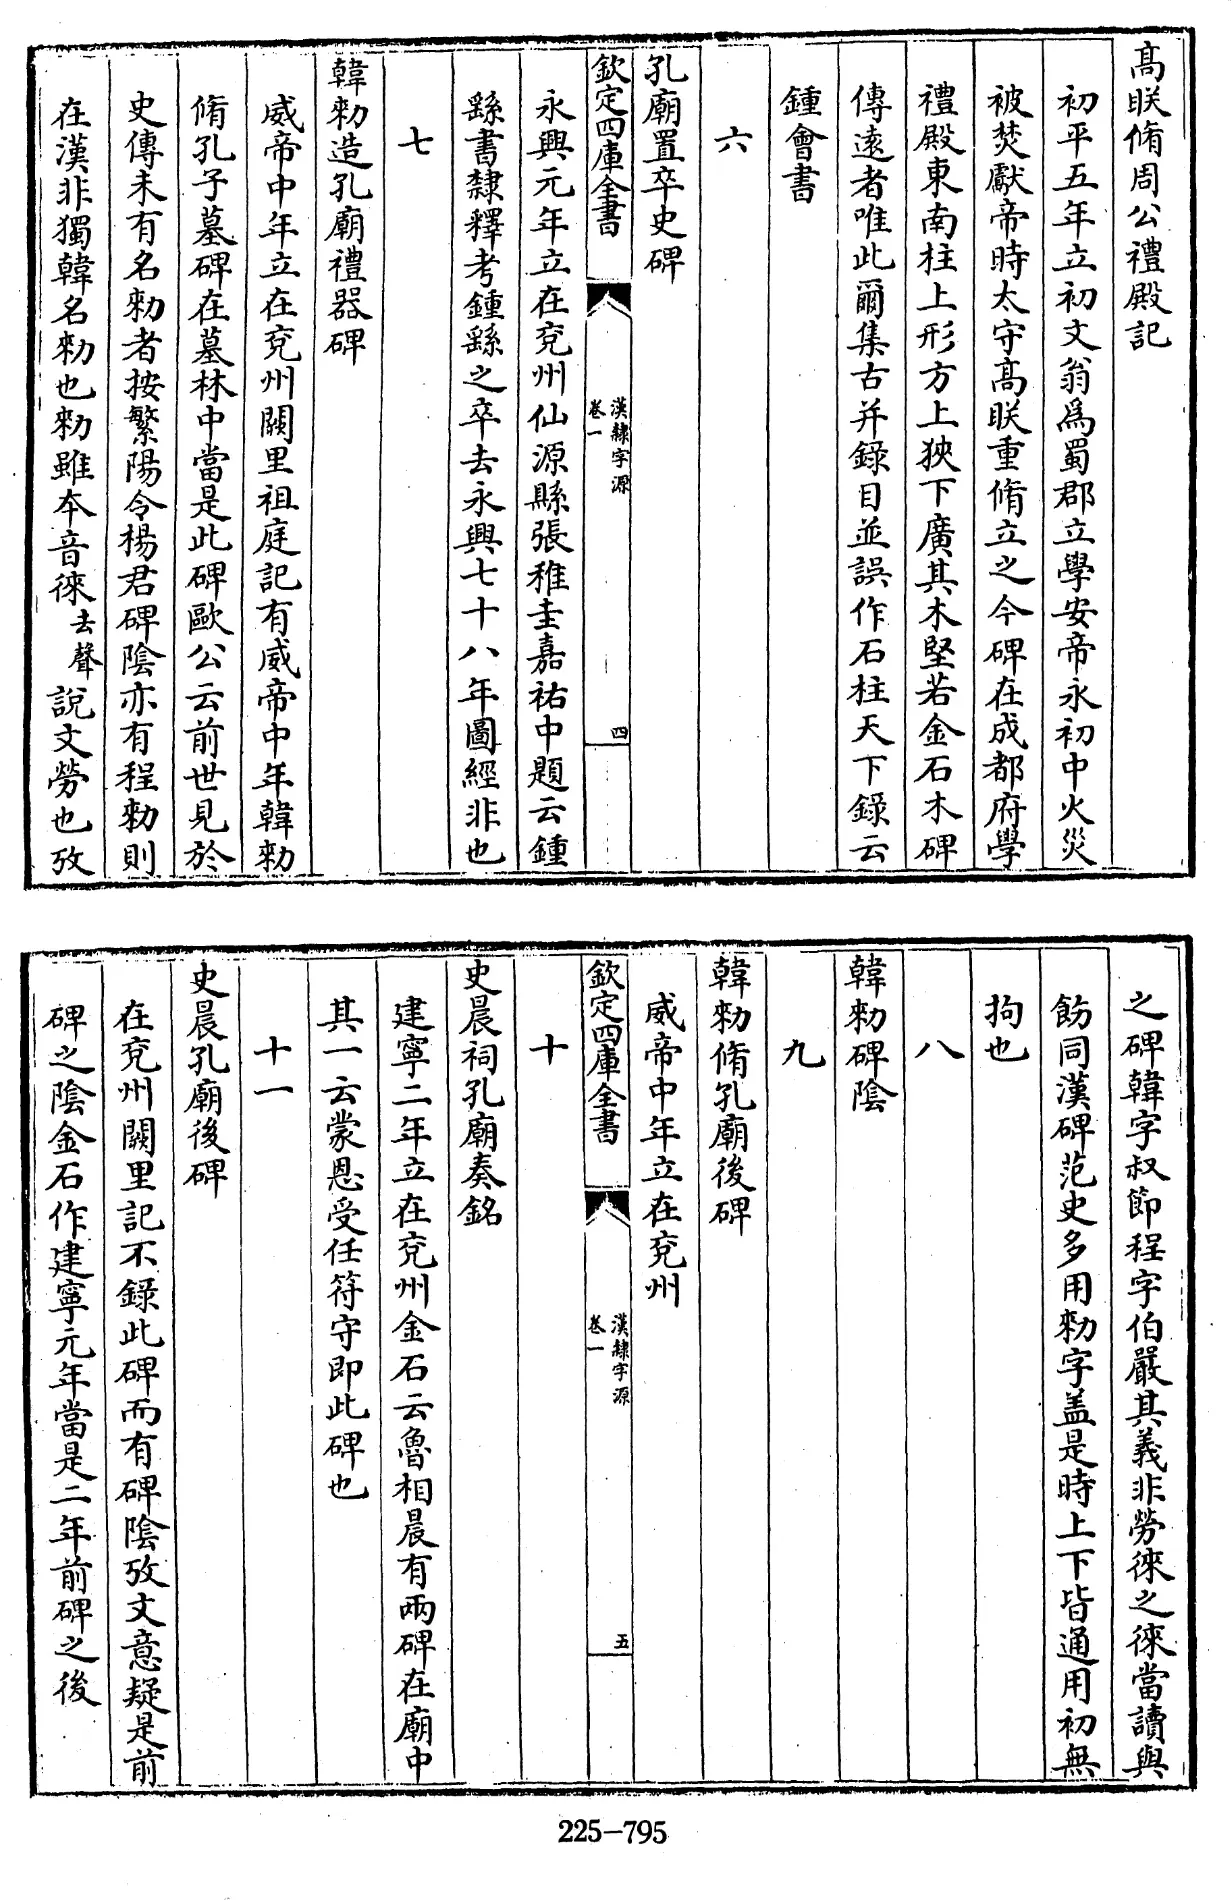 髙眹脩周公禮殿記
初平五年立初文翁爲蜀郡立學安帝永初中火災
被焚獻帝時太守髙眹重脩立之今碑在成都府學
禮殿東南柱上形方上狹下廣其木堅若金石木碑
傳遠者唯此爾集古并錄目並誤作石柱天下錄云
鍾會書
六
孔廟置卒史碑
欽定四庫全書
漢隸字源
卷一
四
永興元年立在兗州仙源縣張稚圭嘉祐中題云鍾
繇書隸釋考鍾繇之卒去永興七十八年圖經非也
七
韓勑造孔廟禮器碑
威帝中年立在兗州闕里祖庭記有威帝中年韓勑
脩孔子墓碑在墓林中當是此碑歐公云前世見於
史傳未有名勑者按繁陽令楊君碑陰亦有程勑則
在漢非獨韓名勑也勑雖本音徠去聲說文勞也攷
之碑韓字叔節程字伯嚴其義非勞徠之徠當讀與
飭同漢碑范史多用勑字盖是時上下皆通用初無
拘也
八
韓勑碑陰
九
韓勑脩孔廟後碑
威帝中年立在兗州
欽定四庫全書
漢隸字源
卷一
五
十
史晨祠孔廟奏銘
建寧二年立在兗州金石云魯相晨有兩碑在廟中
其一云蒙恩受任符守即此碑也
十一
史晨孔廟後碑
在兗州闕里記不錄此碑而有碑陰攷文意疑是前
碑之陰金石作建寧元年當是二年前碑之後
225-795